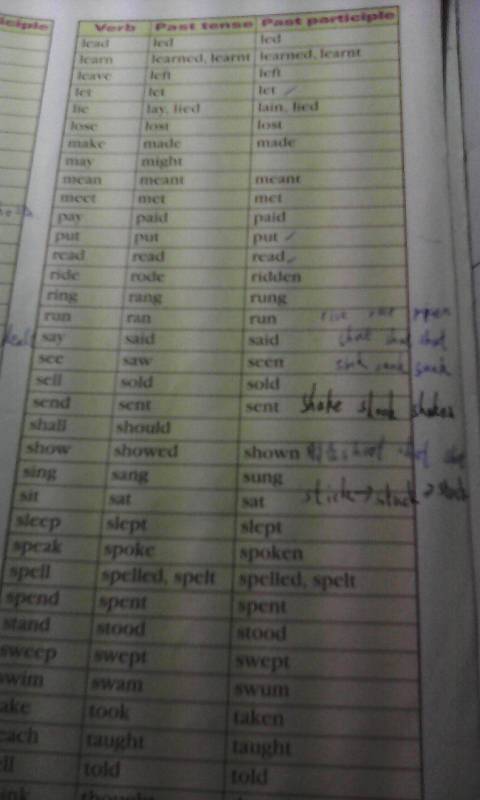 ciple Verb Past tense Past participle
lead led led
learn learned, learnt learned, learnt
leave left left
let let let
lie lay, lied lain, lied
lose lost lost
make made made
may might
mean meant meant
meet met met
pay paid paid
put put put
read read read
ride rode ridden
ring rang rung
run ran run
say said said
see saw seen
sell sold sold
send sent sent shake shook shaken
shall should
show showed shown
sing sang sung
sit sat sat stick → stuck → stuck
sleep slept slept
speak spoke spoken
spell spelled, spelt spelled, spelt
spend spent spent
stand stood stood
sweep swept swept
swim swam swum
ake took taken
each taught taught
ell told told
ink thought